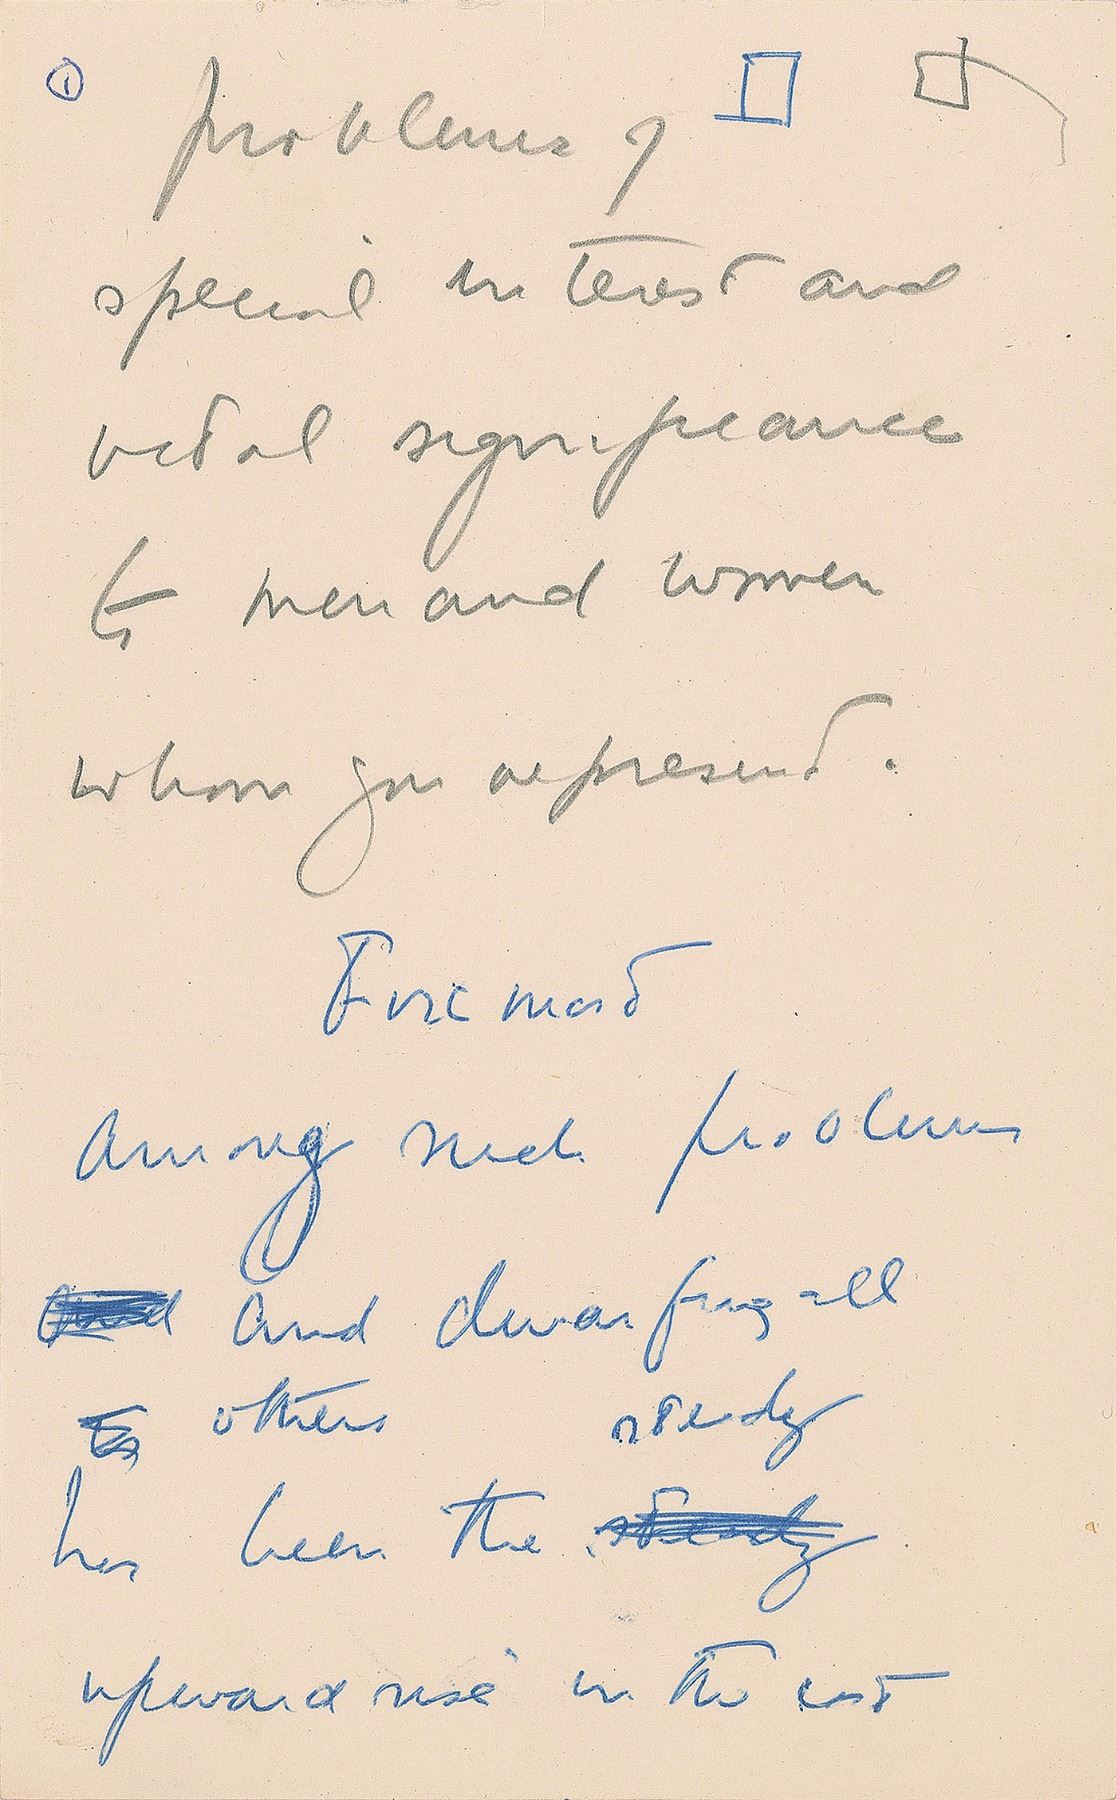 ① problems of
special interest and
vital significance
to men and women
whom you represent.
Foremost
among such problems
and and dwarfing all
others steady
has been the steady
upward rise in the cost